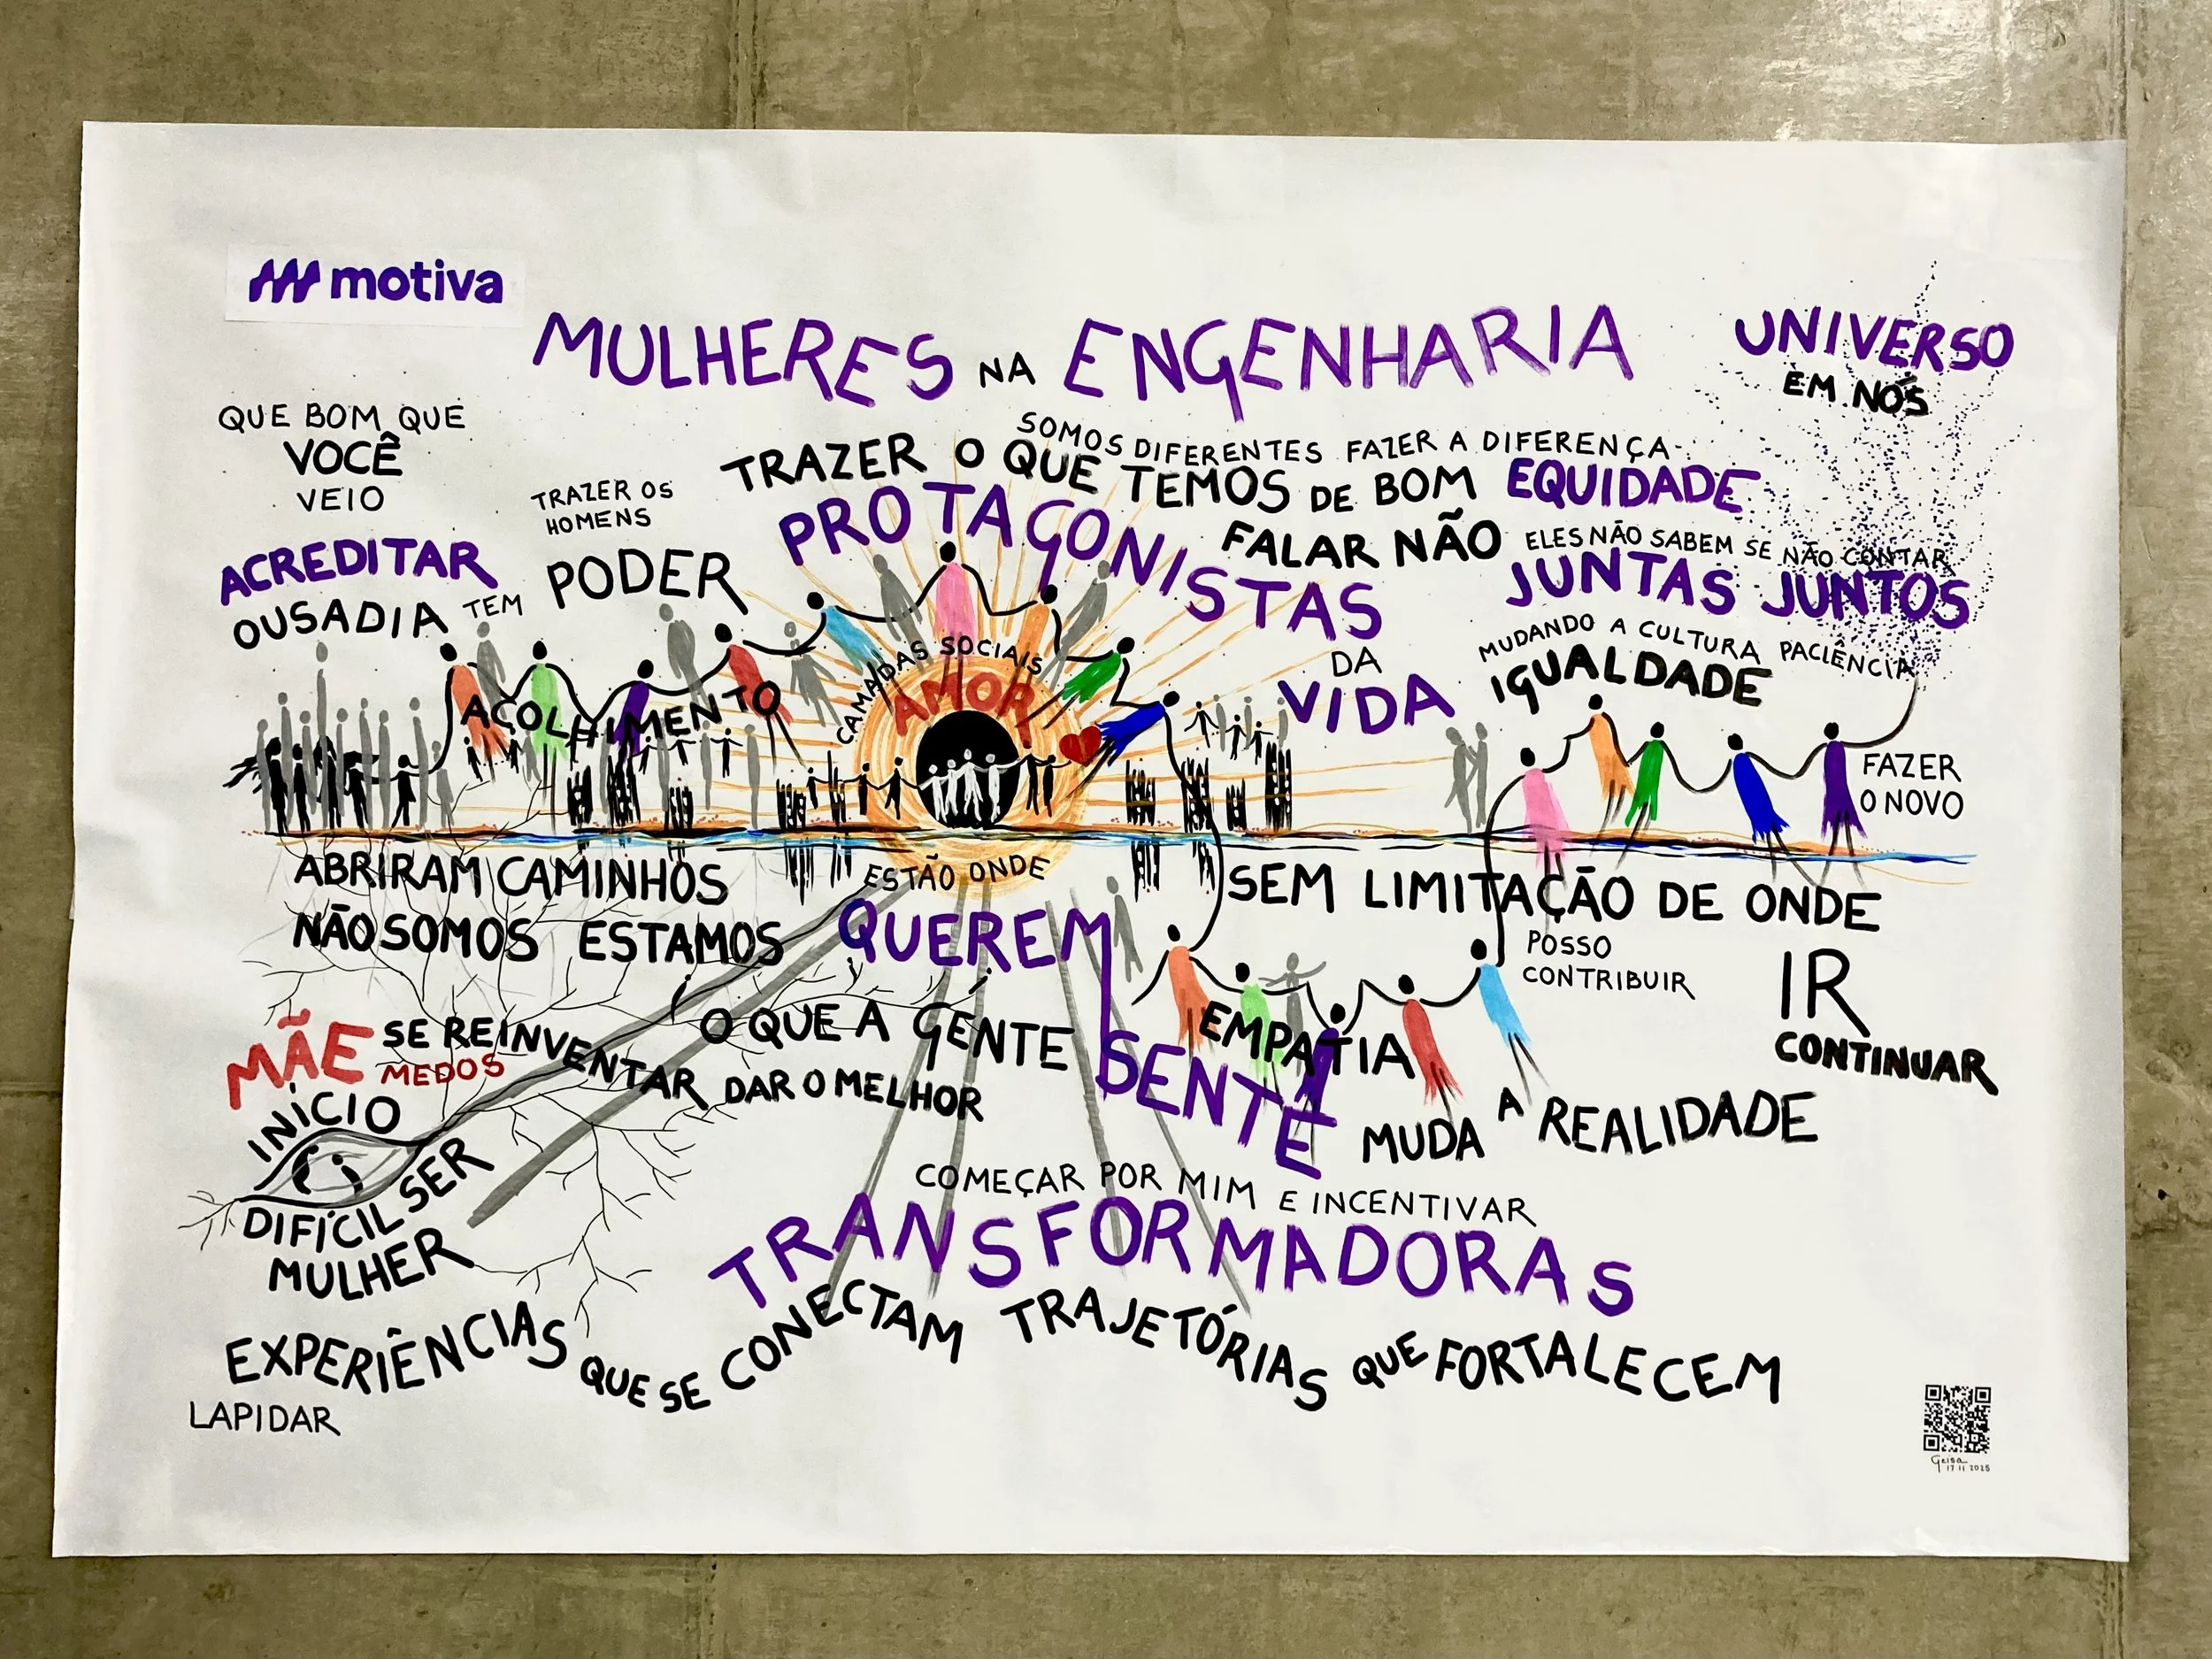 motiva
MULHERES NA ENGENHARIA
UNIVERSO
EM NÓS
QUE BOM QUE
VOCÊ
VEIO
SOMOS DIFERENTES FAZER A DIFERENÇA
TRAZER O QUE TEMOS DE BOM EQUIDADE
TRAZER OS
HOMENS
PROTAGONISTAS
DA
VIDA
FALAR NÃO ELES NÃO SABEM SE NÃO CONTAR
JUNTAS JUNTOS
ACREDITAR
OUSADIA TEM PODER
MUDANDO A CULTURA PACIÊNCIA
IGUALDADE
ACOLHIMENTO
CAMADAS SOCIAIS
AMOR
FAZER
O NOVO
ABRIRAM CAMINHOS
NÃO SOMOS ESTAMOS
ESTÃO ONDE
QUEREM
SEM LIMITAÇÃO DE ONDE
POSSO
CONTRIBUIR
IR
CONTINUAR
MÃE SE REINVENTAR
MEDOS
O QUE A GENTE
SENTE
EMPATIA
DAR O MELHOR
MUDA A REALIDADE
INÍCIO
DIFÍCIL SER
MULHER
COMEÇAR POR MIM E INCENTIVAR
TRANSFORMADORAS
EXPERIÊNCIAS QUE SE CONECTAM TRAJETÓRIAS QUE FORTALECEM
LAPIDAR
Geisa
17 11 2025